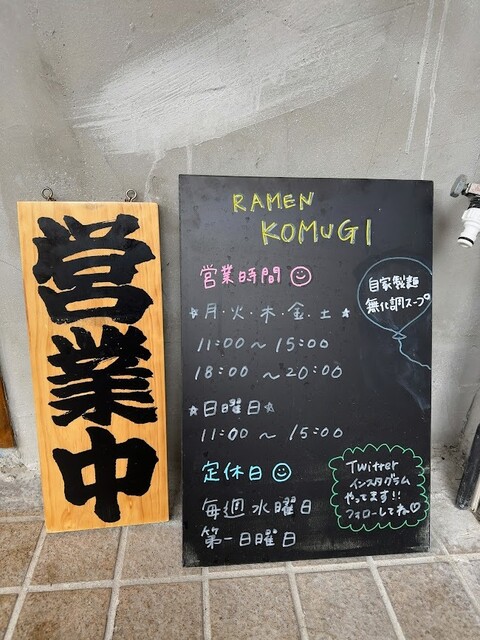 営業中
RAMEN
KOMUGI
営業時間
☆月・火・木・金・土☆
11:00～15:00
18:00～20:00
☆日曜日☆
11:00～15:00
定休日
毎週水曜日
第一日曜日
自家製麺
無化調スープ
Twitter
インスタグラム
やってます!!
フォローしてね♡